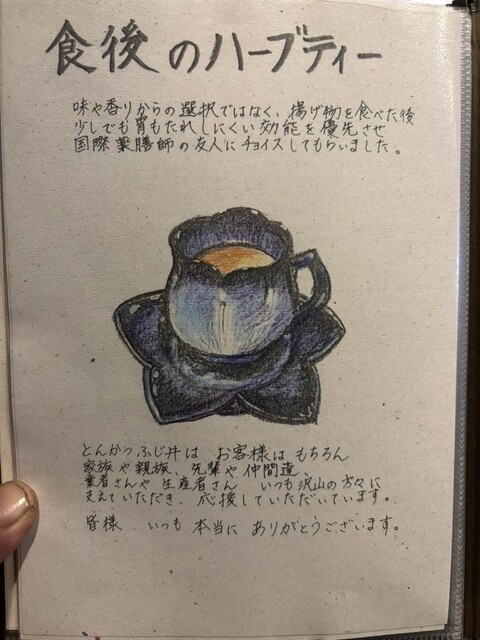 食後のハーブティー
味や香りからの選択ではなく、揚げ物を食べた後
少しでも胃もたれしにくい効能を優先させ
国際薬膳師の友人にチョイスしてもらいました。
とんかつふじ井は お客様は もちろん
家族や親族、先輩や仲間達、
業者さんや生産者さん いつも沢山の方々に
支えていただき、応援していただいています。
皆様 いつも 本当に ありがとうございます。